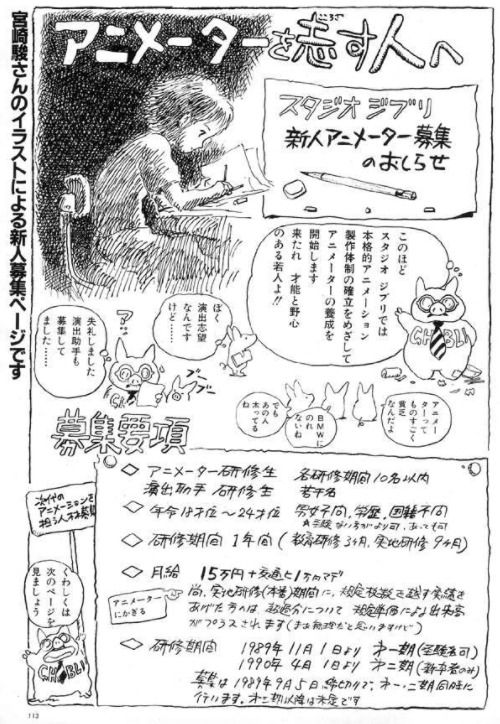 宮崎駿さんのイラストによる新人募集ページです
アニメーターを志す人へ
こころざ
スタジオ ジブリ
新人アニメーター募集
のおしらせ
このほど
スタジオ ジブリでは
本格的アニメーション
製作体制の確立をめざして
アニメーターの養成を
開始します
来たれ 才能と野心
のある若人よ!!
GHIBLI
ぼく
演出志望
なんです
けど……
ア…
失礼しました
演出助手も
募集して
ました……
ブー
ブー
アニメー
ターって
ものすごく
貧乏
なんだよ
BMWに
のれ
ないね
でも
あの人
太ってる
ね
募集要項
◇ アニメーター研修生 各研修期間10名以内
演出助手 研修生 若干名
◇ 年令18才位~24才位 男女不問、学歴、国籍不問
◇ 研修期間 1年間(教育研修3ヶ月、実地研修9ヶ月)
◇ 月給 15万円+交通ヒ1万円マデ
アニメーター
にかぎる
尚、実地研修(本番)期間に、規定枚数を越す実績を
あげた方のは、超過分について 規定単価により出来高
がプラスされます(まあ無理だと思いますけど)
◇ 研修期間 1989年11月1日より 才一期(経験者可)
1990年4月1日より 才二期(新卒者のみ)
募集は1989年9月5日締切りで、才一・二期同時に
行います。才三期以降は未定です
次代の
アニメーションを
担う人材募集
くわしくは
次のページを
見ましょう
GHIBLI
112